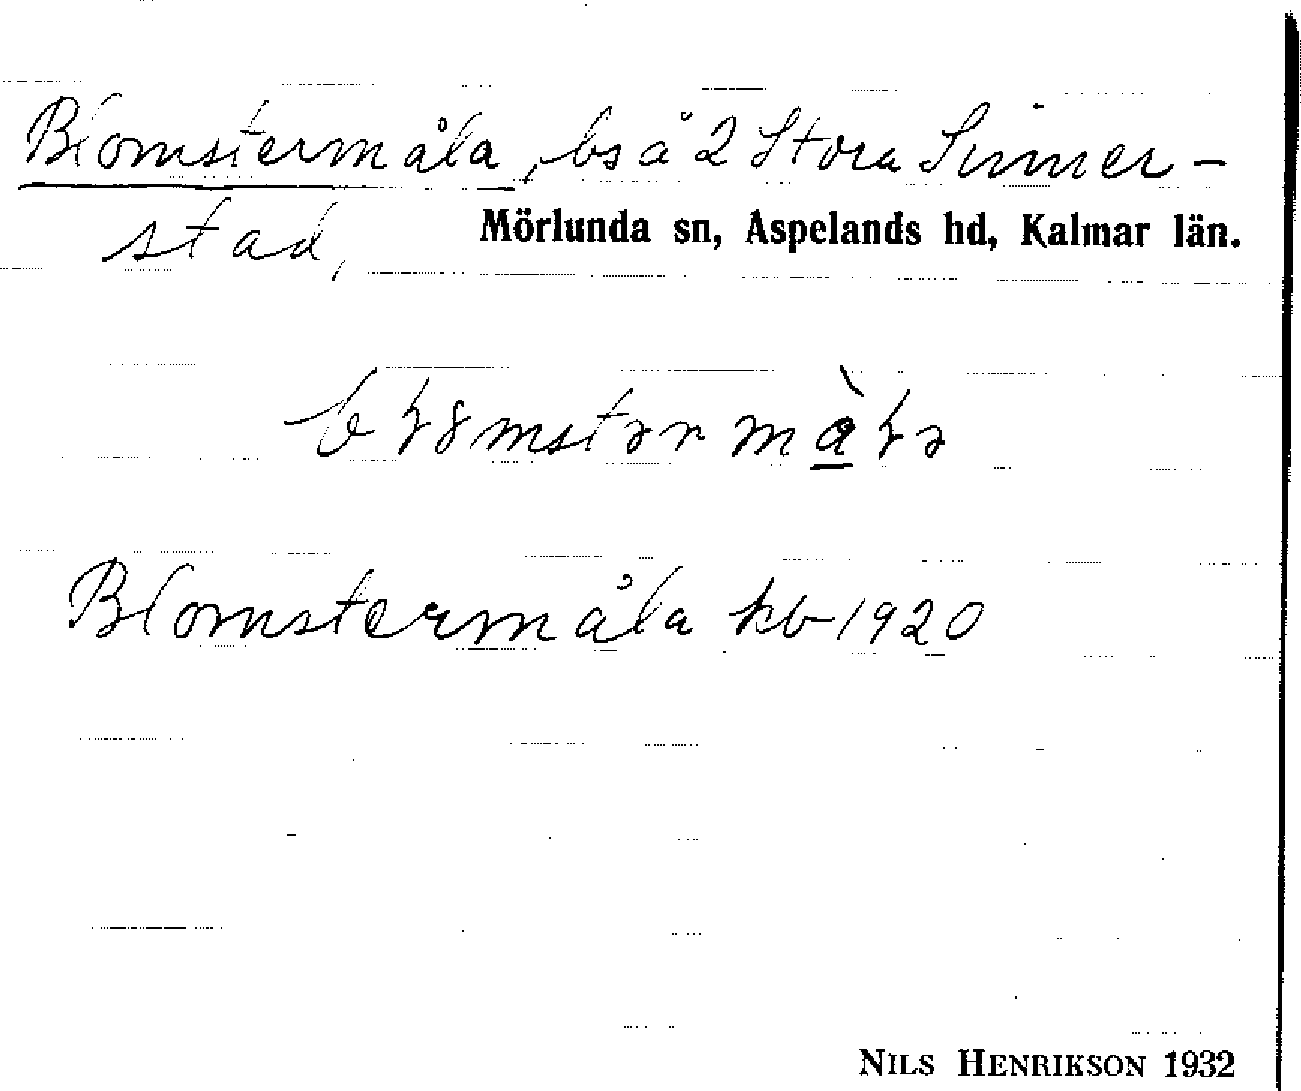 Blomstermåla, bs å 2 Stora Sinner-
stad, Mörlunda sn, Aspelands hd, Kalmar län.
Blomstermåla kb 1920
NILS HENRIKSON 1932